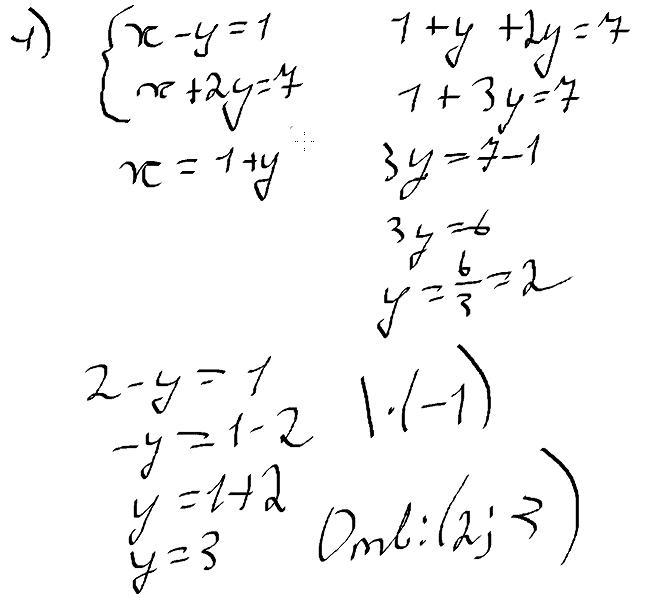 1) { x - y = 1
x + 2y = 7
x = 1 + y
1 + y + 2y = 7
1 + 3y = 7
3y = 7 - 1
3y = 6
y = 6/3 = 2
2 - y = 1 | · (-1)
-y = 1 - 2
y = 1 + 2
y = 3
Отв: (2; 3)